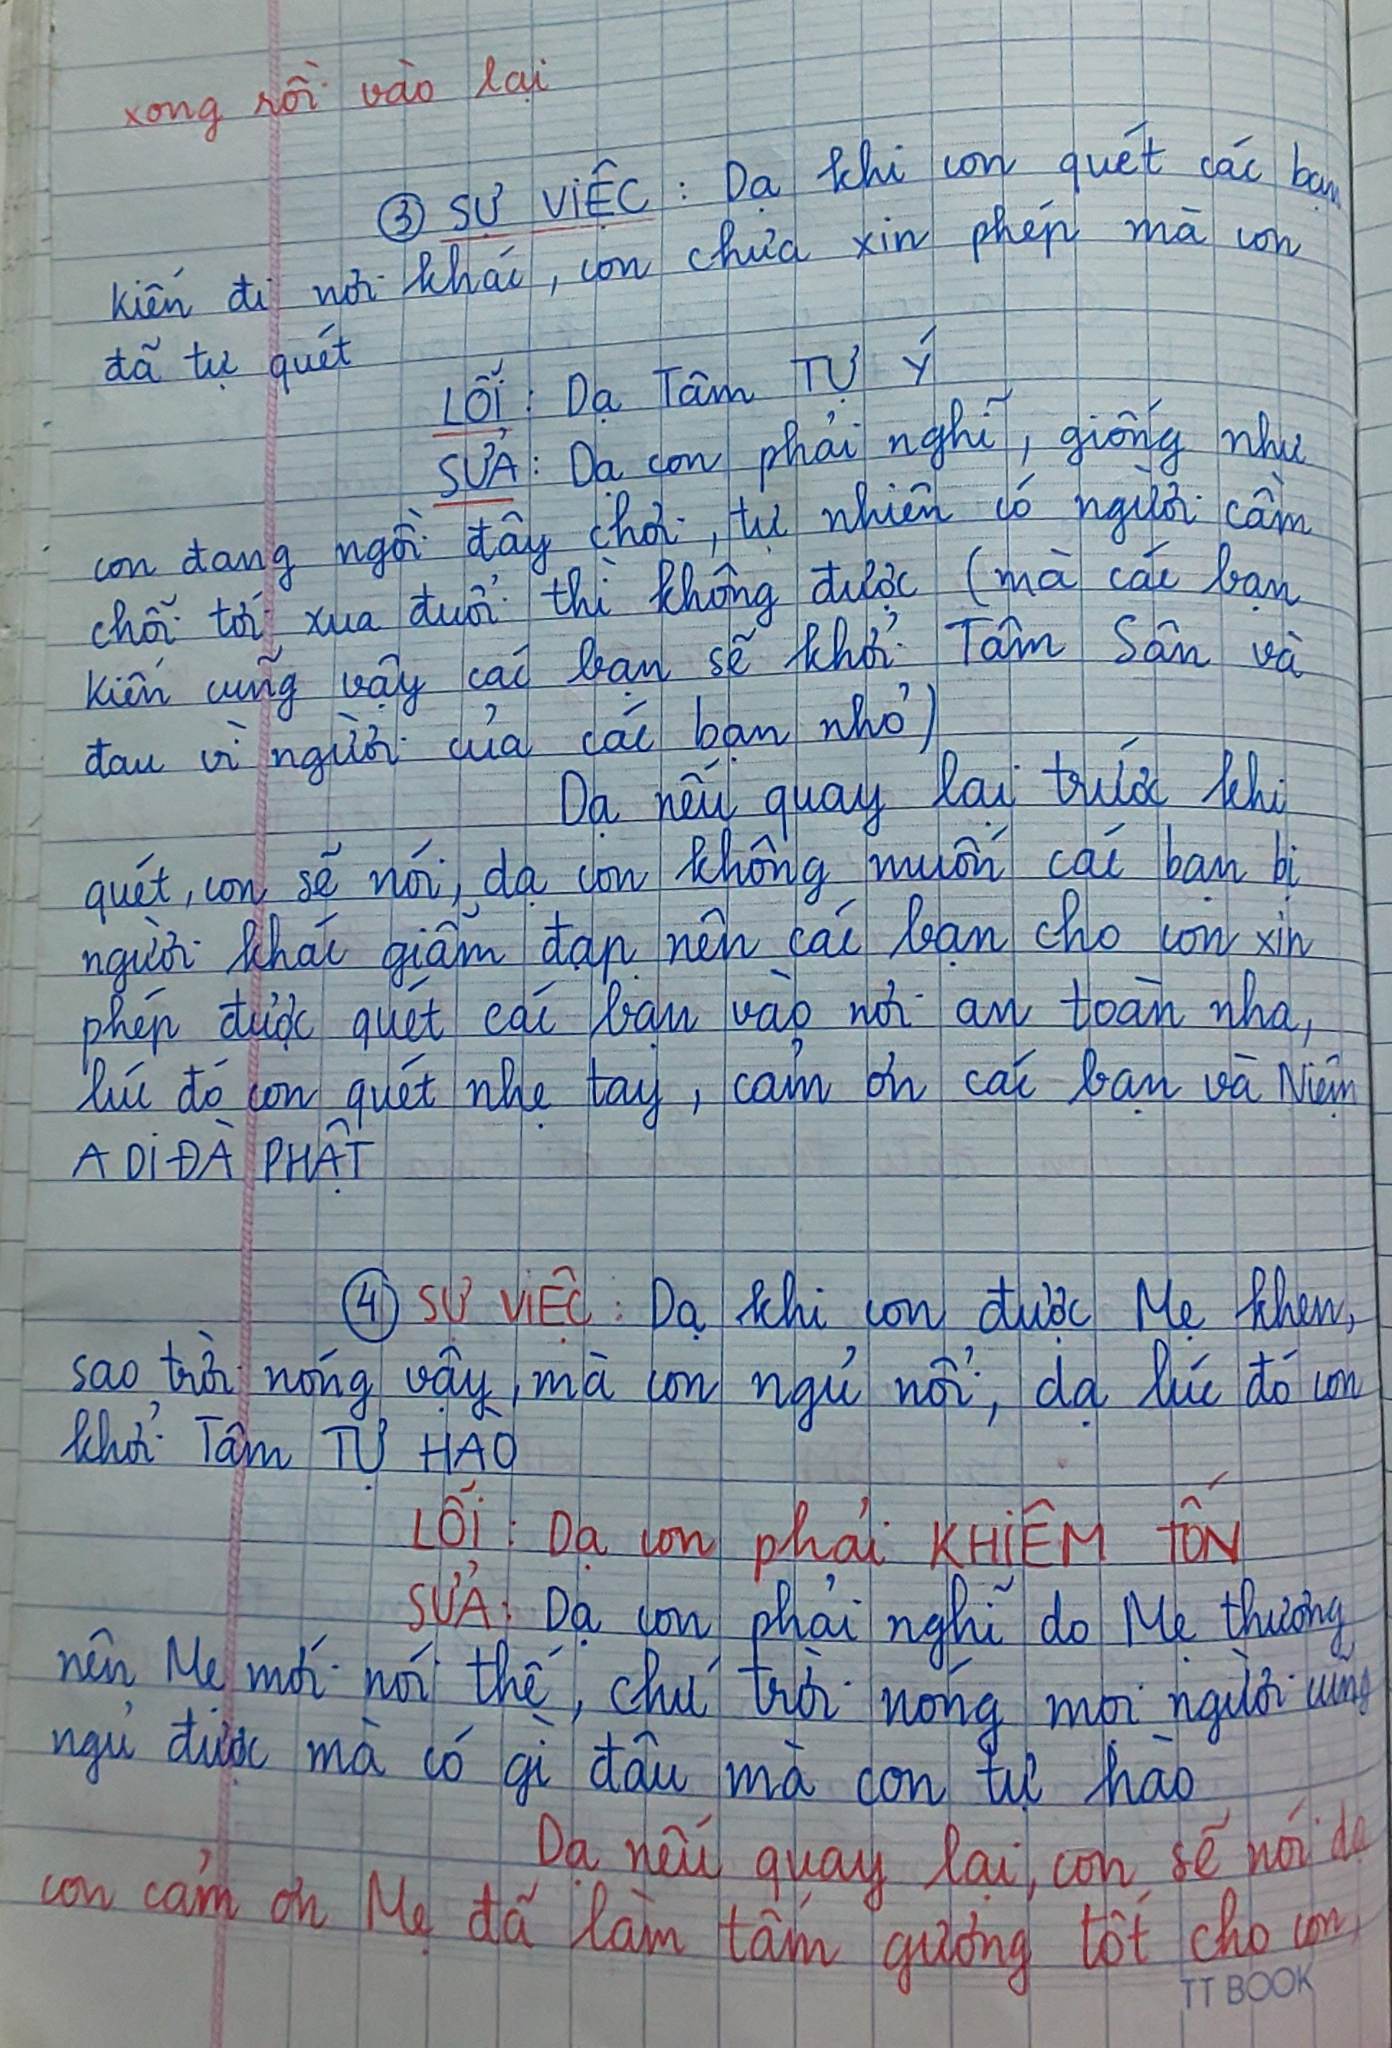 xong rồi vào lại
③ SỰ VIỆC : Dạ khi con quét các bạn
kiến đi nơi khác, con chưa xin phép mà con
đã tự quét
LỖI : Dạ Tâm TỰ Ý
SỬA : Dạ con phải nghĩ, giống như
con đang ngồi đây chơi, tự nhiên có người cầm
chổi tới xua đuổi thì không được (mà các bạn
kiến cũng vậy các bạn sẽ khởi Tâm Sân và
đau vì người của các bạn nhỏ)
Dạ nếu quay lại trước khi
quét, con sẽ nói, dạ con không muốn các bạn bị
người khác giẫm đạp nên các bạn cho con xin
phép được quét các bạn vào nơi an toàn nha,
lúc đó con quét nhẹ tay, cảm ơn các bạn và Niệm
A DI ĐÀ PHẬT
④ SỰ VIỆC : Dạ khi con được Mẹ khen,
sao trời nóng vậy, mà con ngủ nổi, dạ lúc đó con
khởi Tâm TỰ HÀO
LỖI : Dạ con phải KHIÊM TỐN
SỬA : Dạ con phải nghĩ do Mẹ thương
nên Mẹ mới nói thế, chứ trời nóng mọi người cũng
ngủ được mà có gì đâu mà con tự hào
Dạ nếu quay lại, con sẽ nói dạ
con cảm ơn Mẹ đã làm tấm gương tốt cho con,
TT BOOK